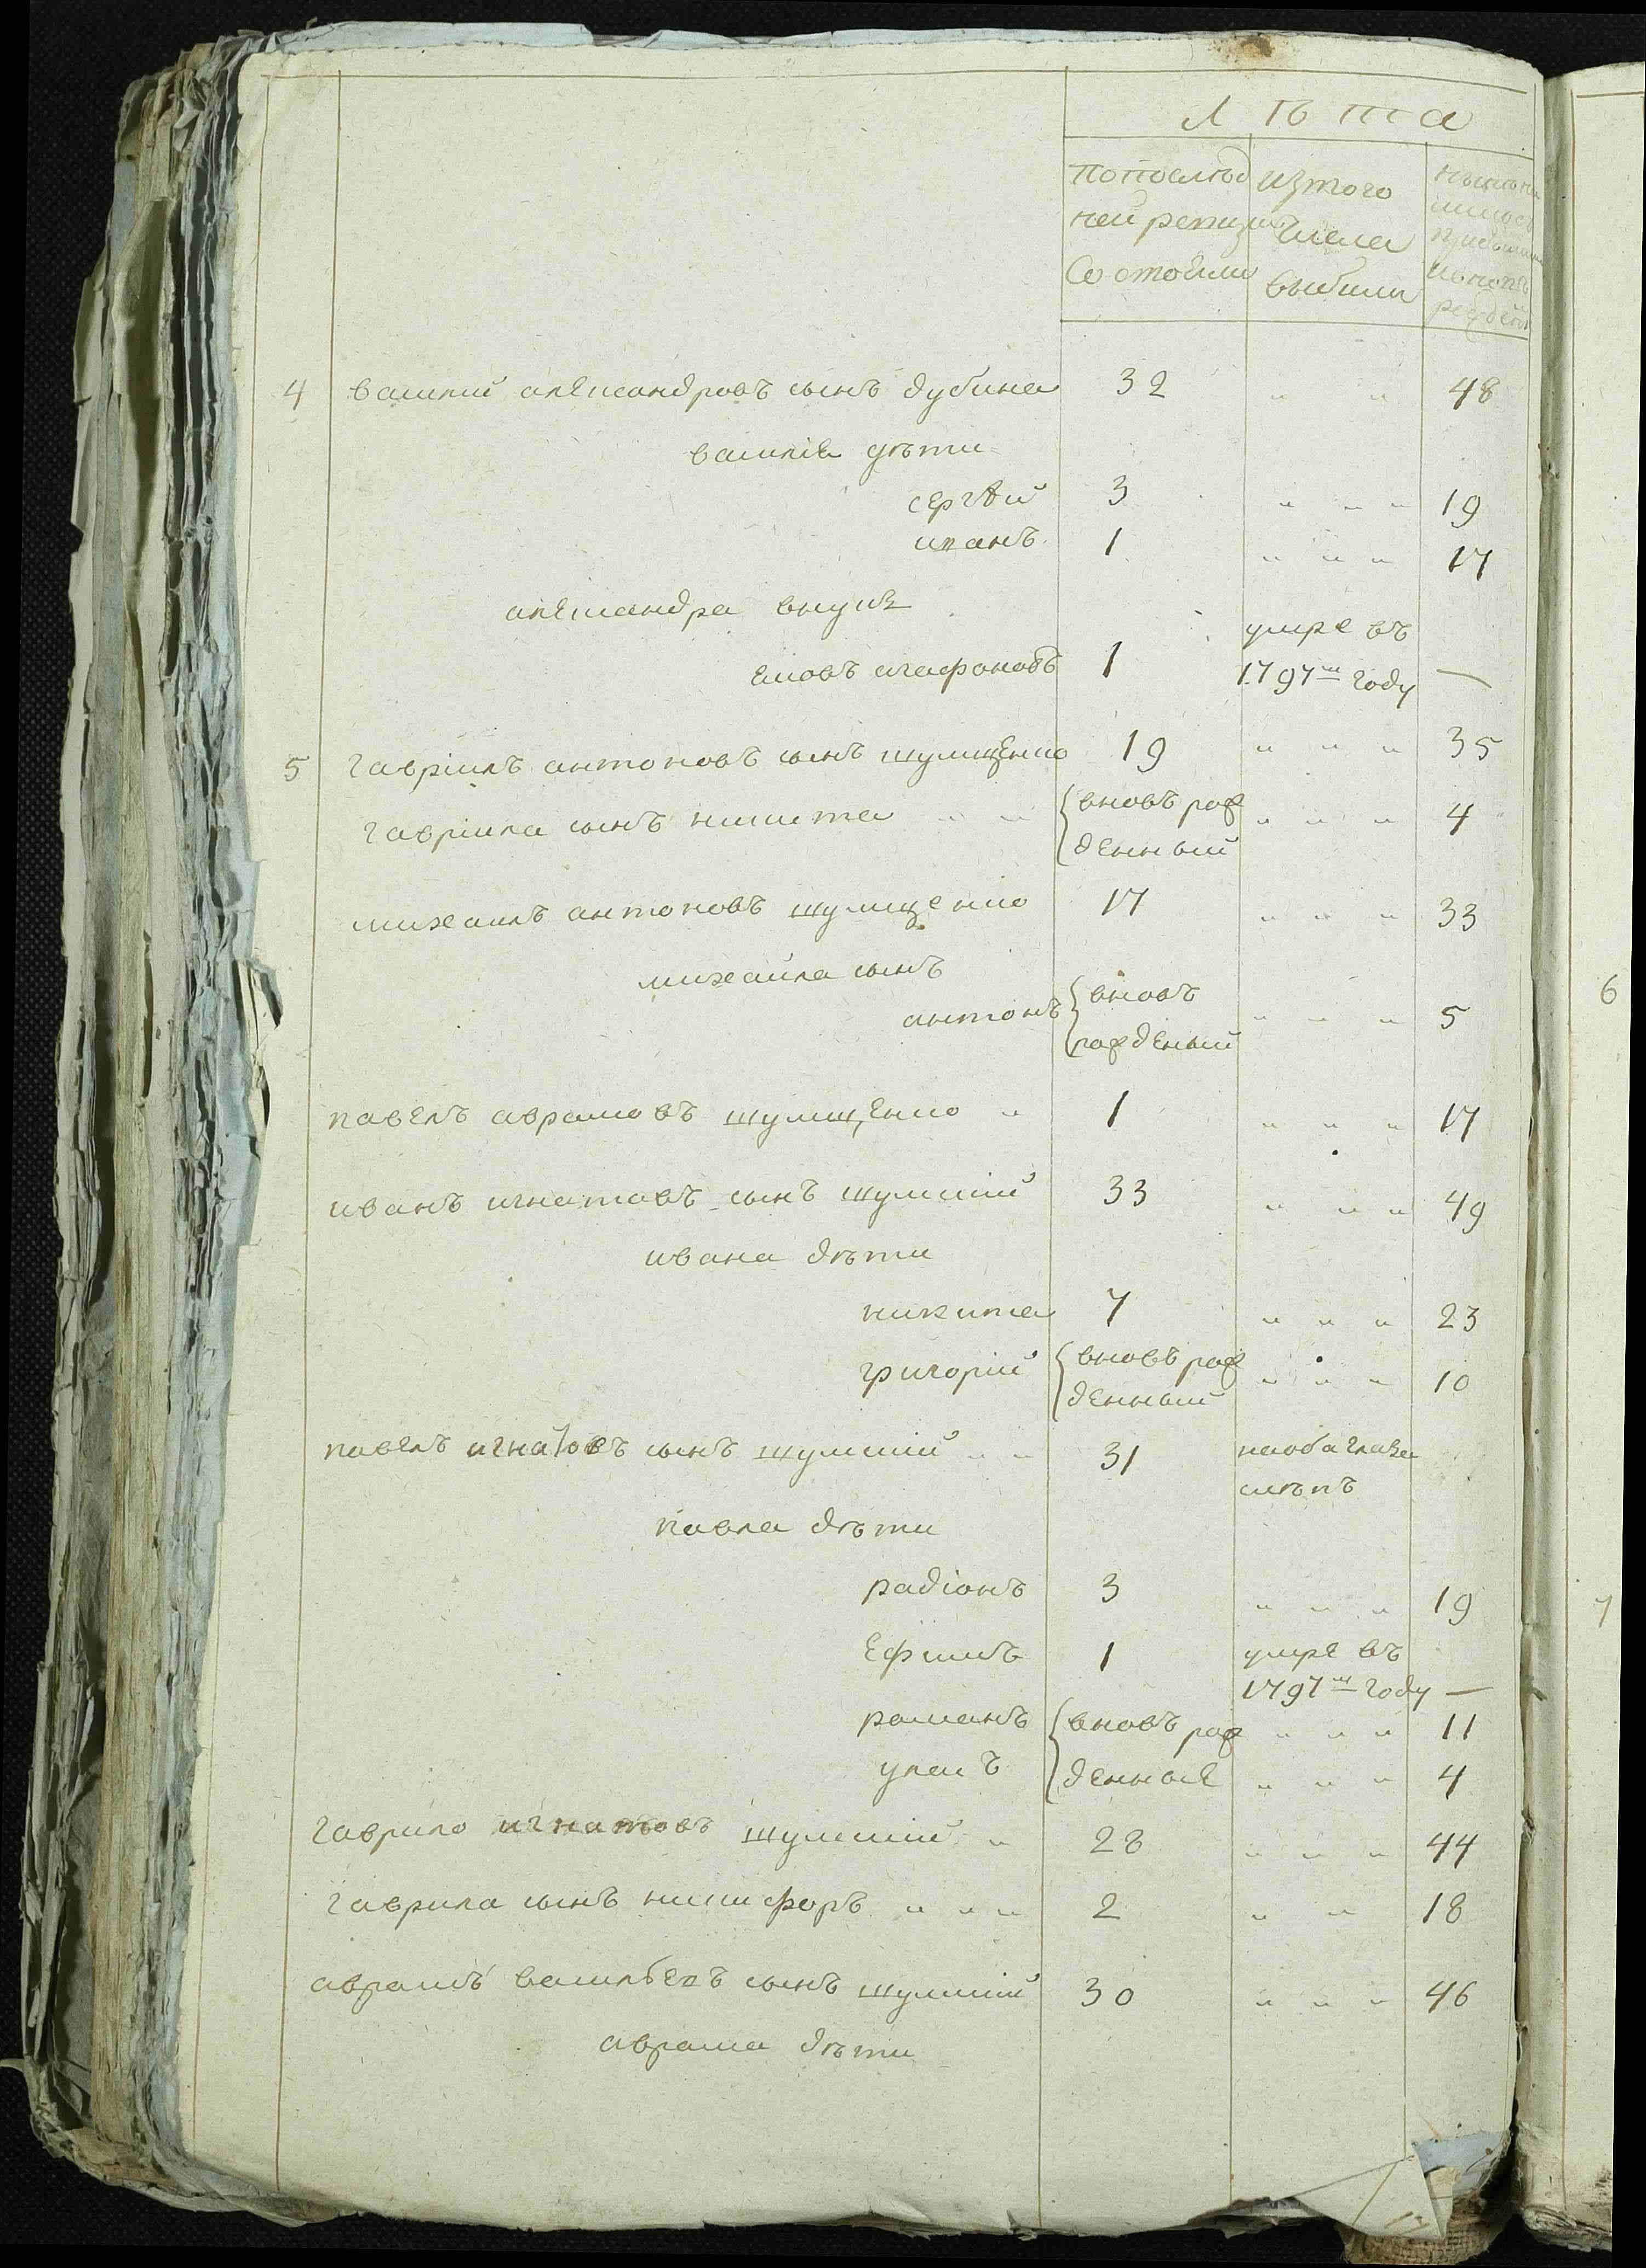 лѣта
попослѣд
ней ревизіи
состояли
изтого
числа
выбыли
4 василий александровъ сынъ дубина 32 " " 48
василія дѣти
сергѣй 3 " " " 19
иванъ 1 " " " 17
александра внукъ
агафоновъ 1 умре въ 1797м году —
5 гавріилъ антоновъ сынъ шулщенко 19 " " " 35
гавріила сынъ никита " " вновъ рож
денный " " " 4
михаилъ антоновъ шулщенко 17 " " " 33
михайла сынъ
антонъ вновъ
рожденый " " " 5
павелъ аврамовъ шулщенко " 1 " " " 17
иванъ игнатовъ сынъ шулский 33 " " " 49
ивана дѣти
никита 7 " " " 23
григорій вновъ рож
денный " " " 10
павелъ игнатовъ сынъ шулский " " 31 наоба глаза
слѣпъ
павла дѣти
радіонъ 3 " " " 19
ефимъ 1 умре въ
1797м году —
романъ вновъ рож " " " 11
денные " " " 4
гаврило игнатовъ шулский " 28 " " " 44
гаврила сынъ никифоръ " " " 2 " " 18
аврамъ васильевъ сынъ шулский 30 " " " 46
аврама дѣти
6
7